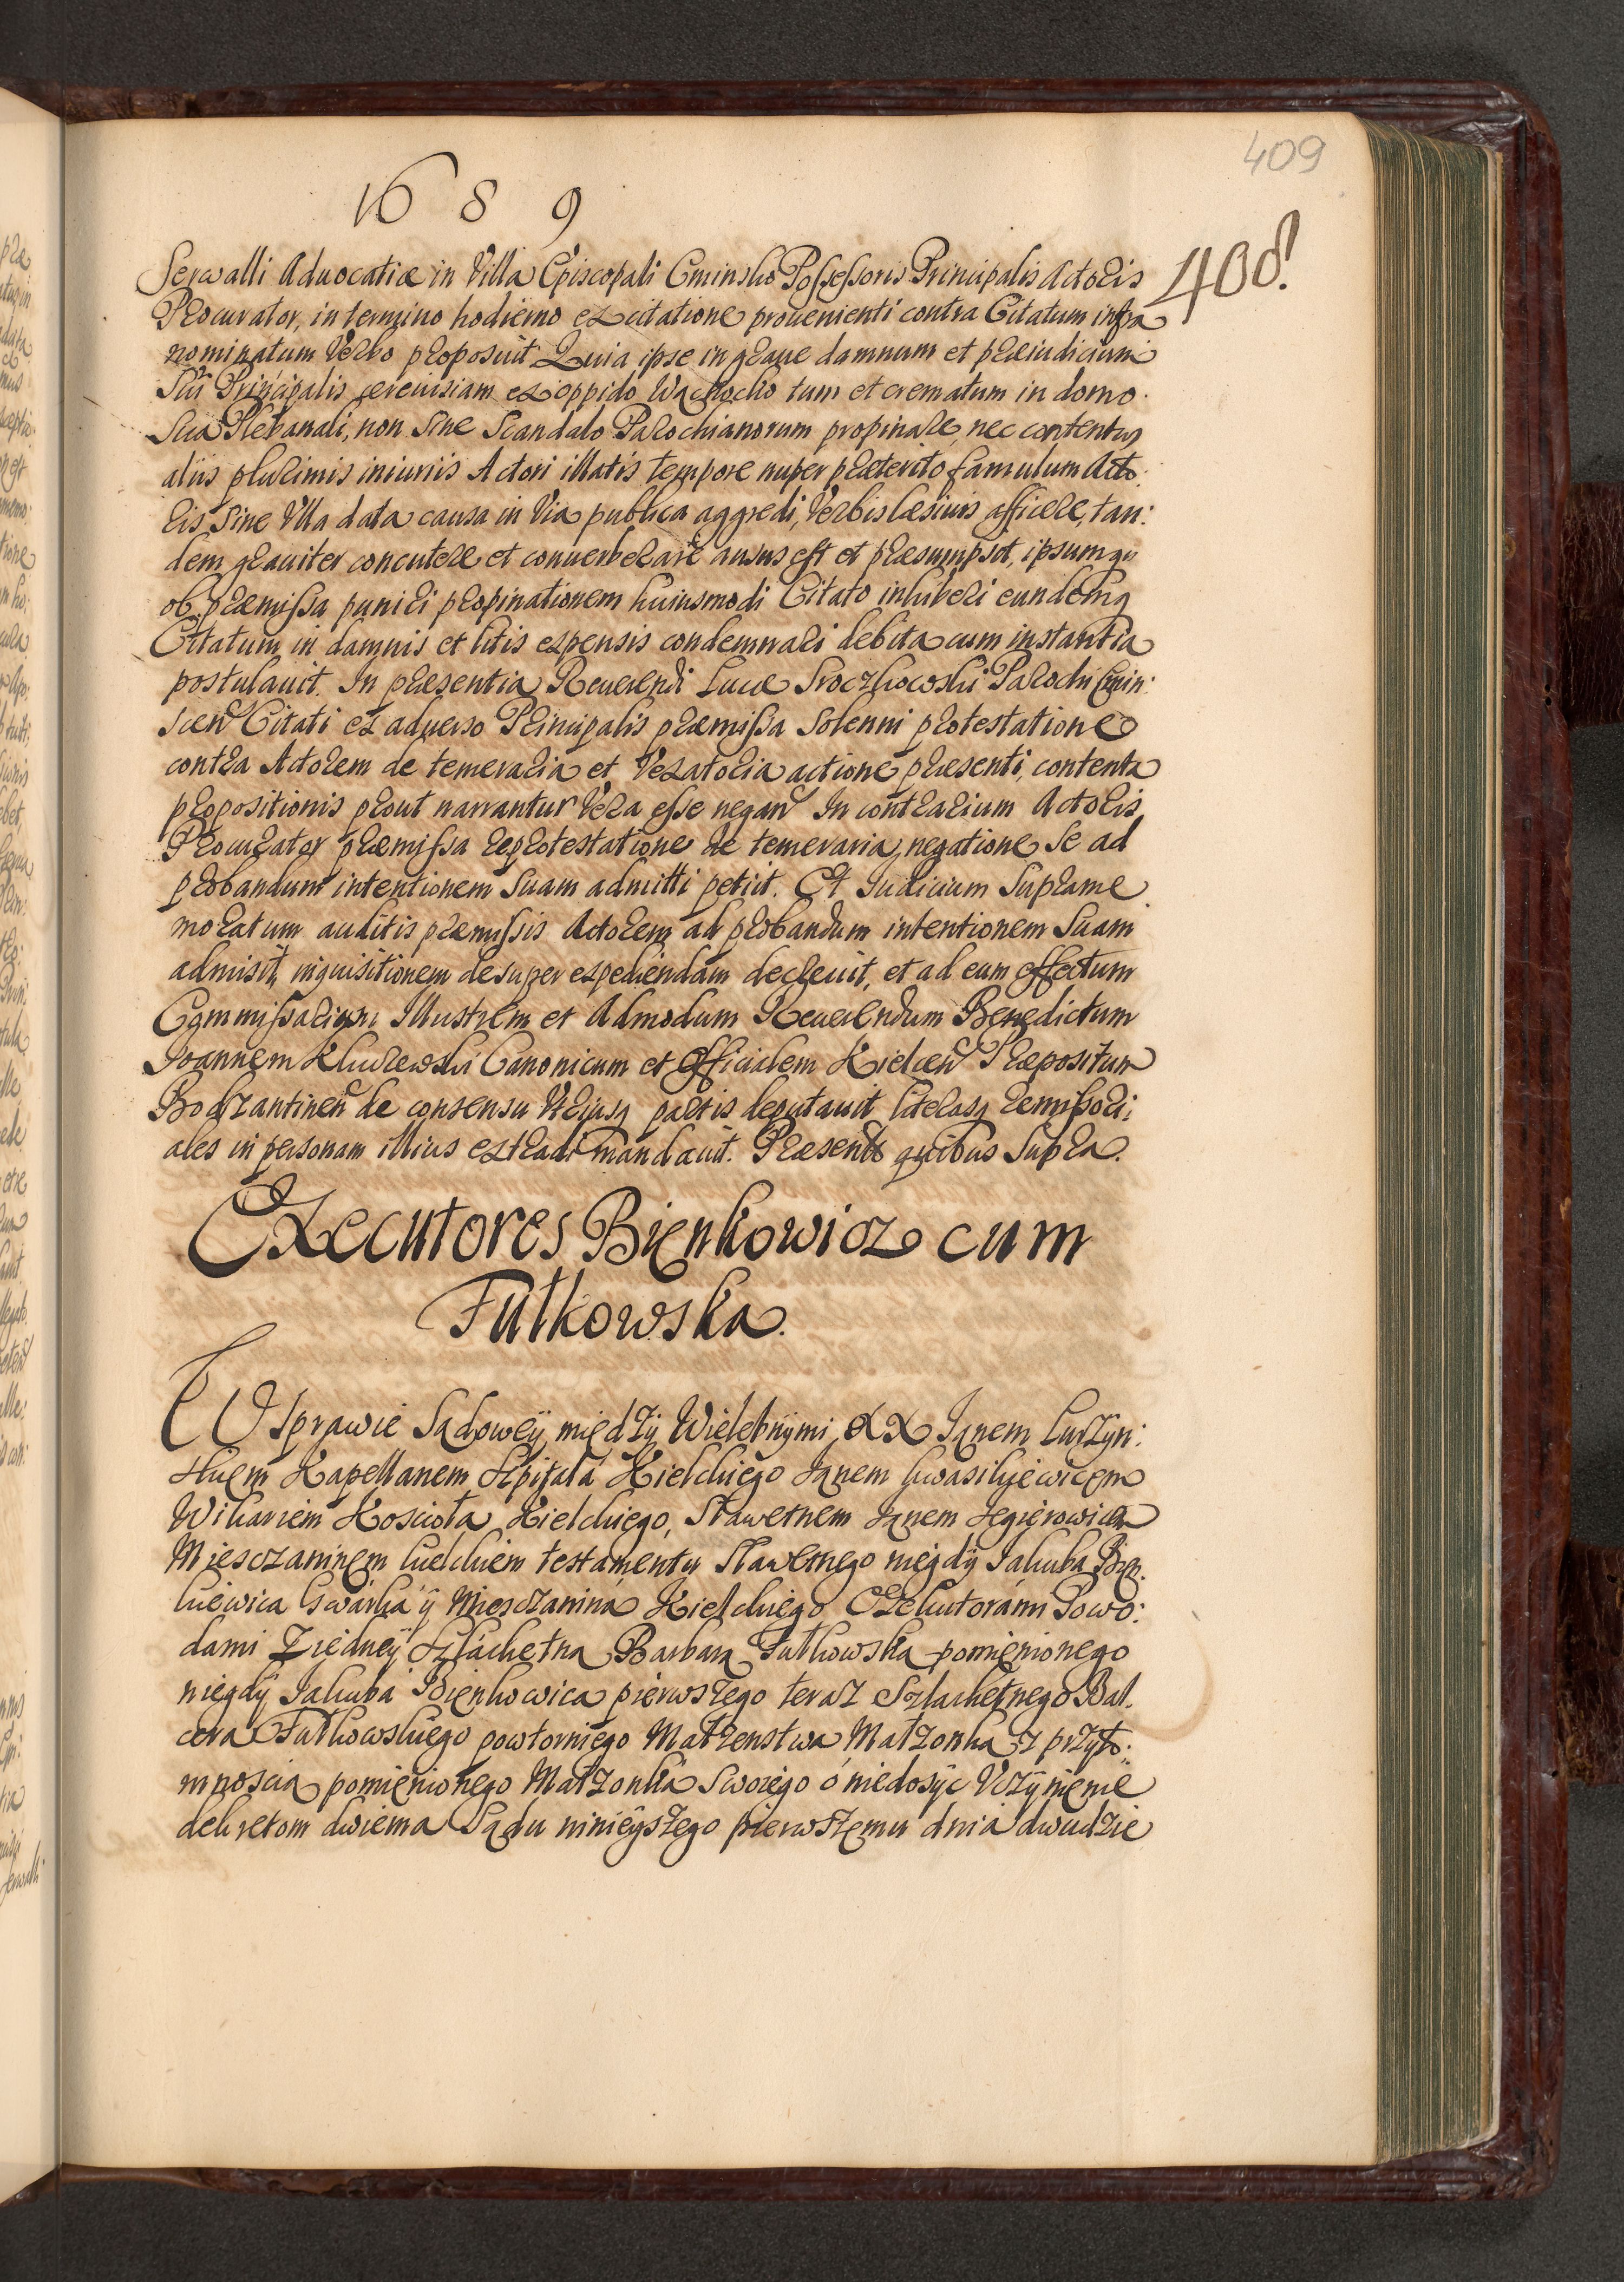 409
1689
408.
Serwalli Aduocatiæ in Villa Episcopali Cminsko Possessoris Principalis Actoris
Procurator, in termino hodierno ex citatione prouenienti contra Citatum infra
nominatum Verbo proposuit Quia ipse in graue damnum et præiudicium
Sui Principalis cereuisiam ex oppido Wachocko tum et crematum in domo
Sua Plebanali, non sine Scandalo Parochianorum propinare, nec contentus
aliis plurimis iniuriis Actori illatis tempore nuper præterito famulum Acto:
ris sine Vlla data causa in Via publica aggredi, Verbis læsiuis afficere, tan:
dem grauiter concutere et conuerberare ausus est et præsumpsit, ipsumq
ob præmissa puniri propinationem huiusmodi Citato inhiberi eundemq
Citatum in damnis et litis expensis condemnari debita cum instantia
postulauit. In præsentia Reuerendi Lucæ Sroczkowski Parochi Cmin:
scen Citati ex aduerso Principalis præmissa Solenni protestatione
contra Actorem de temeraria et Vexatoria actione præsenti, contenta
propositionis prout narrantur Vera esse negan In contrarium Actoris
Procurator præmissa reprotestatione de temeraria negatione se ad
probandum intentionem Suam admitti petiit. Et Iudicium Suprame
moratum auditis præmissis Actorem ad probandum intentionem Suam
admisit, inquisitionem desuper expediendam decreuit, et ad eum effectum
Commissarium Illustrem et Admodum Reuerendum Benedictum
Ioannem Klurewski Canonicum et Officialem Kielcen Præpositum
Bodzantinen de consensu Vtriusq partis deputauit literasq remissori:
ales in personam illius extradi mandauit. Præsentib quibus Supra.
Executores Bienkowicz cum
Futkowska.
W Sprawie Sądowey między Wielebnymi XX Janem Luszyn:
skiem Kapellanem Szpitala Kielckiego Janem Kwasilyiewicem
Wikariem Koscioła Kielckiego, Sławetnem Janem Jegierowicem
Miesczaninem kielckiem testamentu Sławetnego niegdy Jakuba Bien:
kiewica Gwarka y Miesczanina Kielckiego Exekutorámi Powo:
dami Z iedney Szlachetna Barbara Futkowska pomienionego
niegdy Jakuba Bienkowica pierwszego teraz Szlachetnego Bal.
cera Futkowskiego powtornego Małzenstwa Małzonka z przyto:
mnoscia pomienionego Małzonka Swoiego o niedosyc Vczynienie
dekretom dwiema Sądu ninieyszego pierwszemu dnia dwudzie